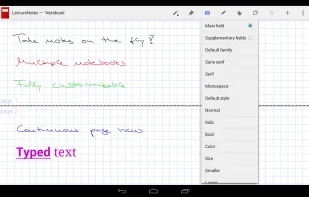 LectureNotes — Notebook
Take notes on the fly!
Multiple notebooks
Fully customizable
page 1
page 2
Continuous page view
Typed text
Main field
Supplementary fields
Default family
Sans serif
Serif
Monospace
Default style
Normal
Italic
Bold
Color
Size
Smaller
Larger